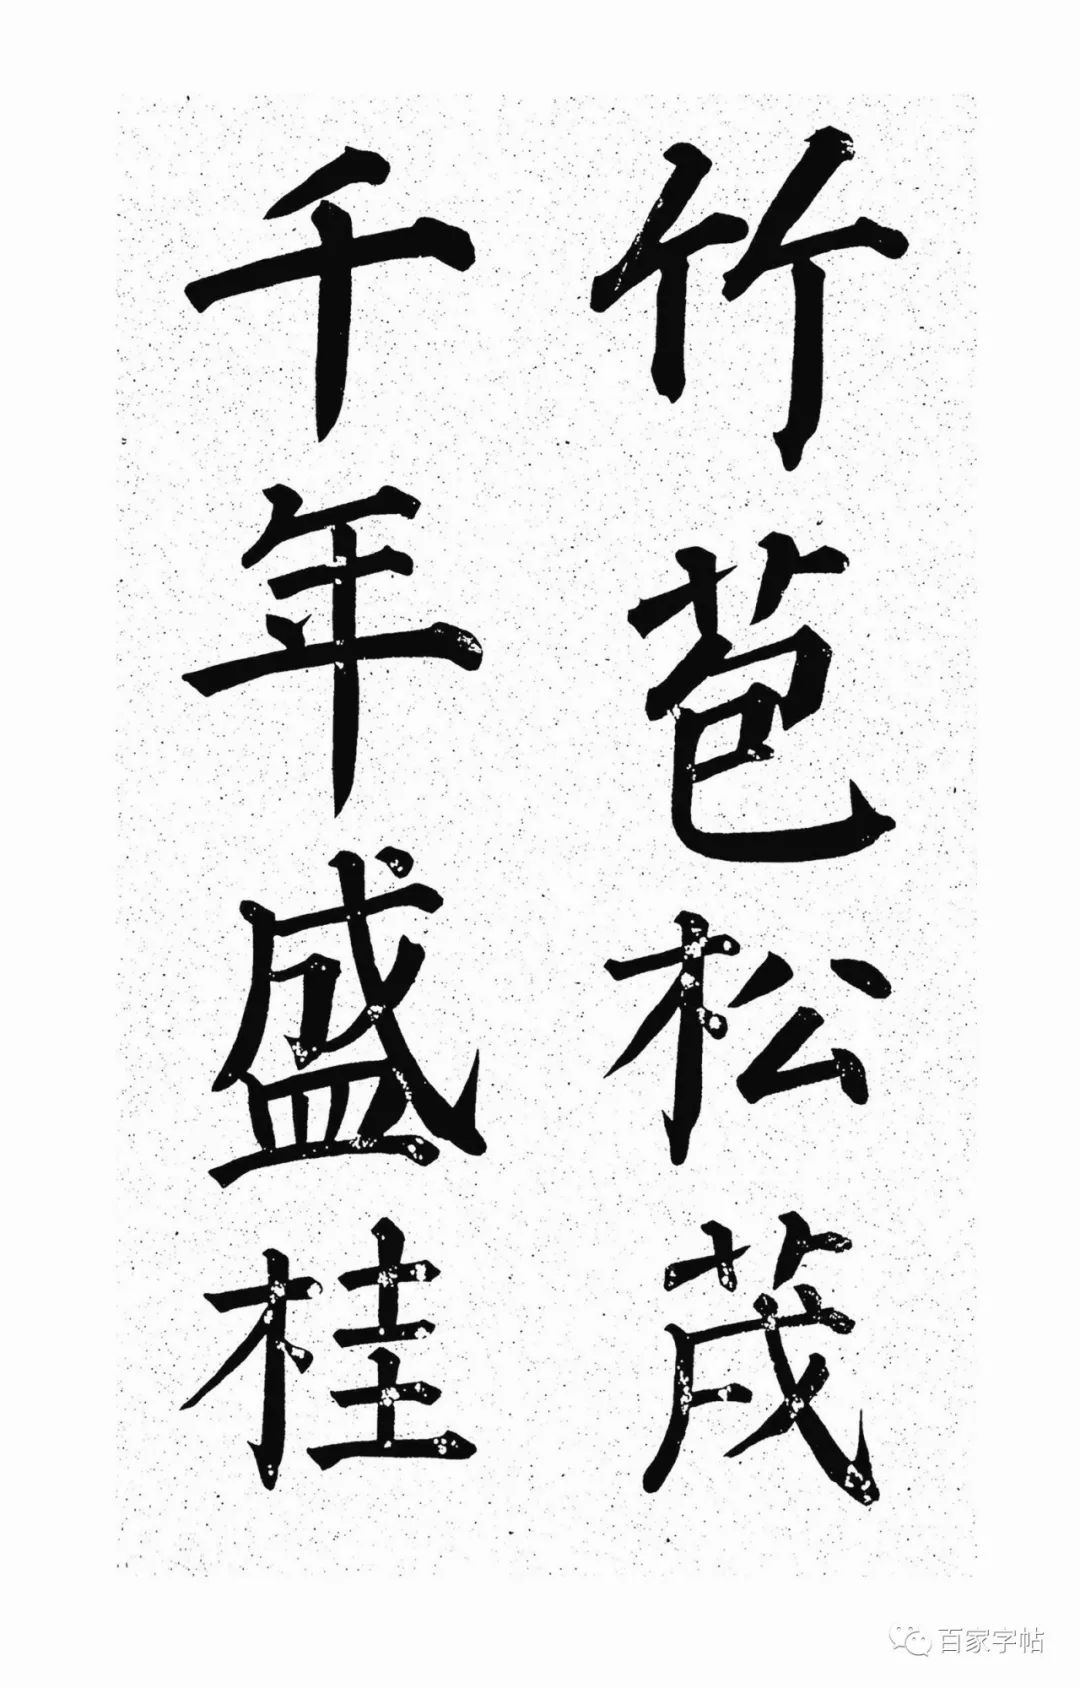 竹苞松茂
千年盛桂
百家字帖